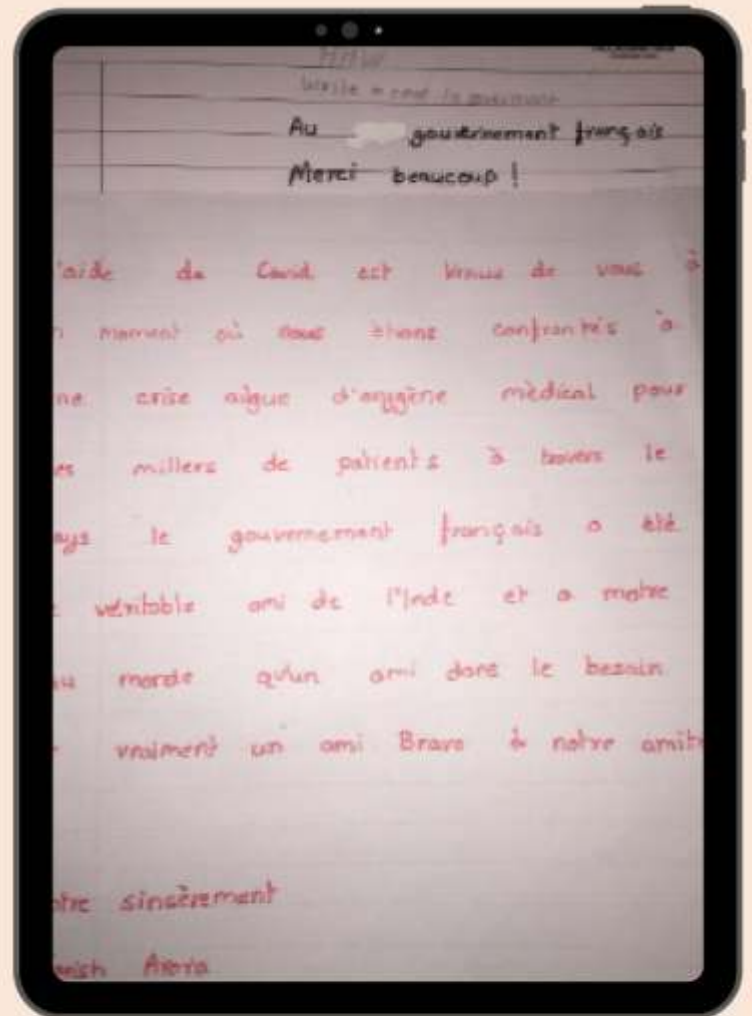 H/W
Write a card to
Au gouvernement français
Merci beaucoup !
'aide de Covid est venue de vous à
moment où nous étions confrontés à
ne crise aigue d'oxygène médical pour
es millers de patients à travers le
ays le gouvernement français a été
véritable ami de l'Inde et a
qu'un ami dans le besoin
vraiment un ami Bravo à notre amit
otre sincèrement
Arora